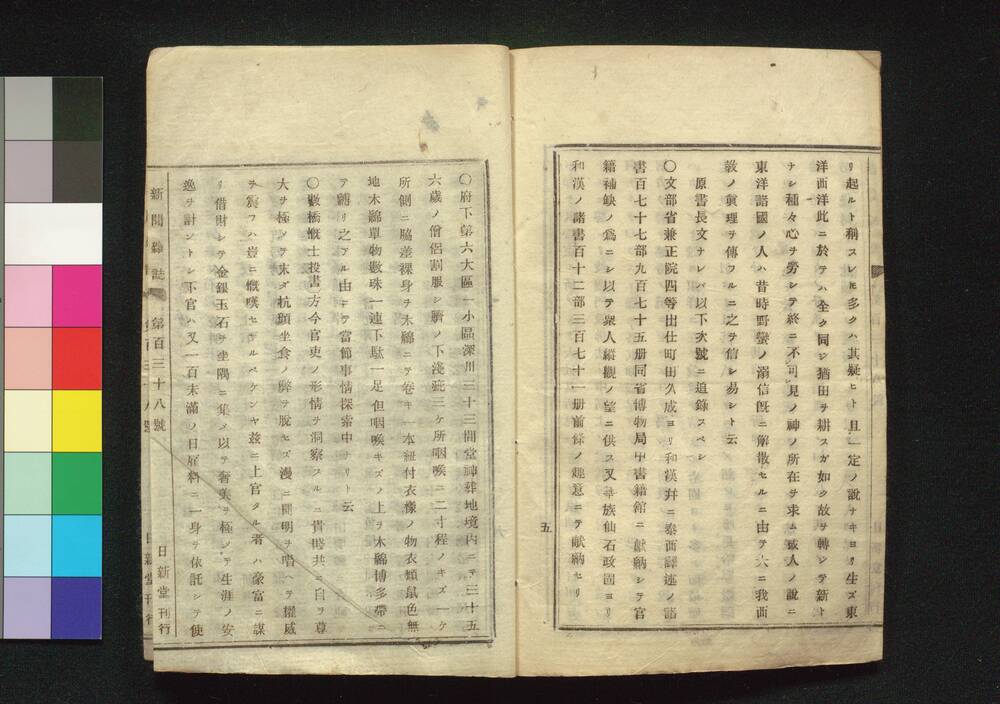 リ起ルト稱スレ𪜈多クハ其疑ヒト且一定ノ說ナキヨリ生ズ東
洋西洋此ニ於テハ全ク同ジ猶田ヲ耕スガ如ク故ヲ轉シテ新ト
ナシ種々心ヲ勞シテ終ニ不可見ノ神ノ所在ヲ求ム或人ノ說ニ
東洋諸國ノ人ハ昔時野蠻ノ溺信旣ニ解散セルニ由テ大ニ我西
敎ノ眞理ヲ傳フルニ之ヲ信シ易シト云
原書長文ナレバ以下次號ニ追錄スベシ
〇文部省兼正院四等出仕町田久成ヨリ和漢幷ニ泰西譯述ノ諸
書百七十七部九百七十五册同省博物局中書籍館ニ獻納シテ官
籍補缺ノ爲ニシ以テ衆人縱觀ノ望ニ供ス又華族仙石政固ヨリ
和漢ノ諸書百十二部三百七十一册前條ノ趣意ニテ献納セリ
五
〇府下第六大區一小區深川三十三間堂神葬地境內ニテ三十五
六歲ノ僧侶割服シ臍ノ下淺疵三ケ所咽喉ニ二寸程ノキズ一ケ
所側ニ脇差裸身ヲ木綿ニテ卷キ一本紐付衣樣ノ物衣類鼠色無
地木綿單物數珠一連下駄一足但咽喉キズノ上ヲ木綿博多帶ニ
テ縛リ之アル由ニテ當節事情探索中ナリト云
〇數橋慨士投書方今官吏ノ形情ヲ洞察スルニ貴賤共ニ自ラ尊
大ヲ極メテ未ダ抗顏坐食ノ弊ヲ脫セズ漫ニ開明ヲ唱ヘテ權威
ヲ震フハ豈ニ慨嘆セザルベケンヤ茲ニ上官タル者ハ豪富ニ謀
リ借財シテ金銀玉石ヲ坐隅ニ集メ以テ奢美ヲ極メテ生涯ノ安
逸ヲ計ントシ下官ハ又一百未滿ノ日庽料ニ一身ヲ依託シテ使
新聞雜誌 第百三十八號 日新堂刊行